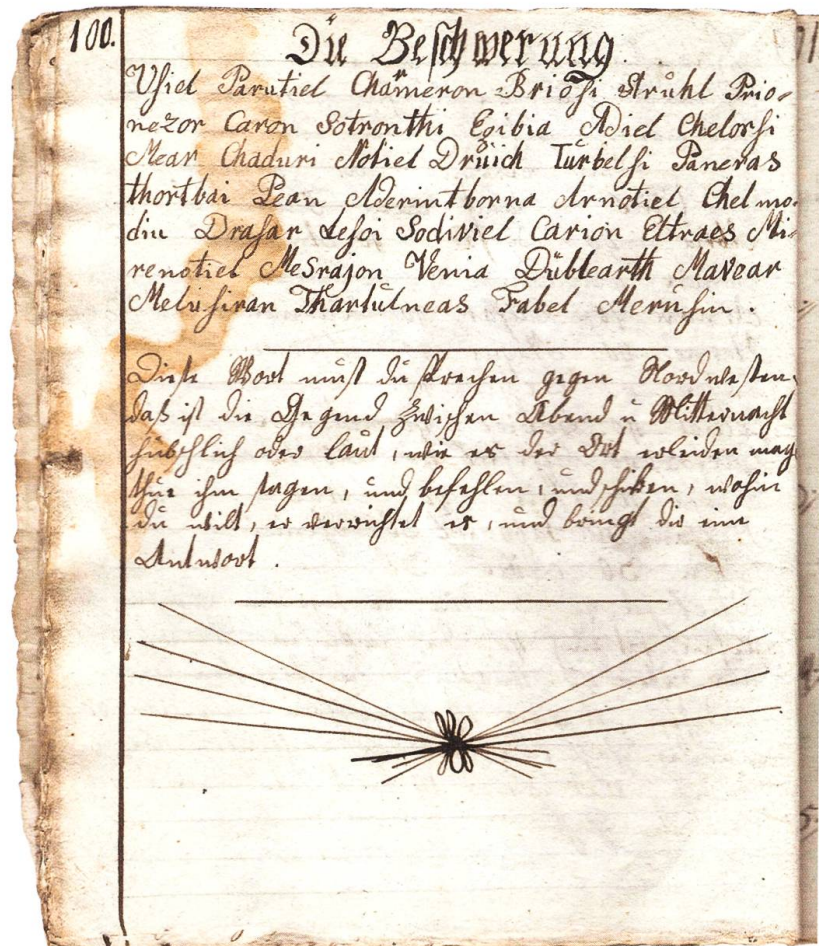 100.
Die Beschwerung
Usiel Parutiel Chameron Briosi Struhl Prio-
nezor Caron Sotronthi Egibia Adiel Chelorsi
Mear Chaduri Notiel Drüich Turbelsi Paneras
thortbai Pean Aderintborna Arnotiel Chelmo-
din Drasar Lesoi Sodiviel Carion Eltraes Mi-
renotiel Mesrajon Venia Düblearth Mavear
Melusiran Thartulneas Fabel Merusin.
Diese Wort must du sprechen gegen Nordwesten,
daß ist die Gegend zwischen Abend u Mitternacht
hübschlich oder laut, wie es der Ort erleiden mag
thue ihm sagen, und befehlen, und schicken, wohin
du wilt, er verrichtet es, und bringt dir eine
Antwort.